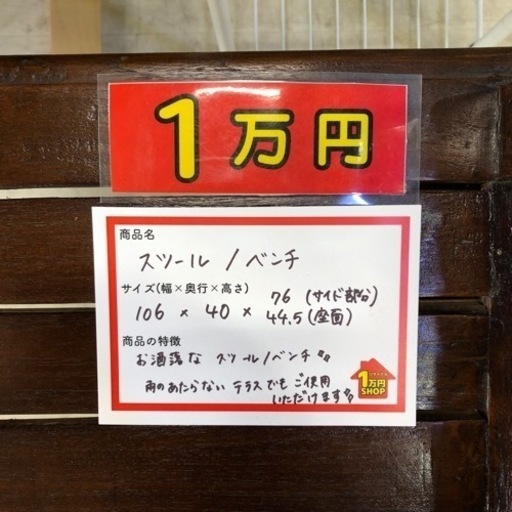 1万円
商品名
スツール / ベンチ
サイズ(幅×奥行×高さ)
106 × 40 × 76 (サイド部分)
44.5 (座面)
商品の特徴
お洒落な スツール/ベンチ〃
雨のあたらない テラスでも ご使用
いただけます〃
1万円
SHOP